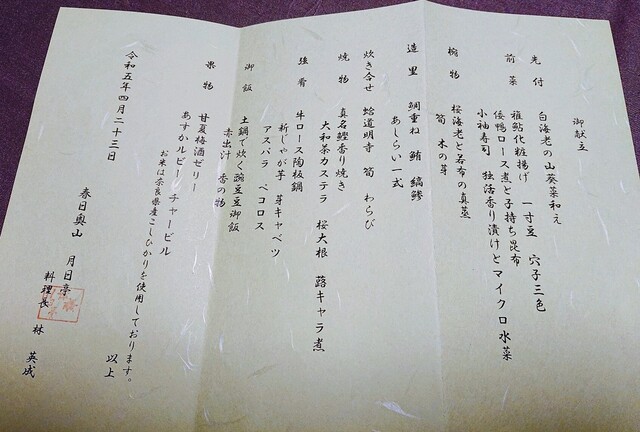 御献立
先付
白海老の山葵菜和え
前菜
稚鮎化粧揚げ 一寸豆 穴子三色
倭鴨ロース煮と子持ち昆布
小袖寿司 独活香り漬けとマイクロ水菜
椀物
桜海老と若布の真薯
筍 木の芽
造里
鯛重ね 鮪 縞鯵
あしらい一式
炊き合せ
蛤道明寺 筍 わらび
焼物
真名鰹香り焼き
大和茶カステラ 桜大根 蕗キャラ煮
強肴
牛ロース陶板鍋
新じゃが芋 芽キャベツ
アスパラ ペコロス
御飯
土鍋で炊く豌豆御飯
赤出汁 香の物
果物
甘夏梅酒ゼリー
あすかルビー チャービル
お米は奈良県産こしひかりを使用しております。
以上
令和五年四月二十三日
春日奥山 月日亭
料理長 林 英成